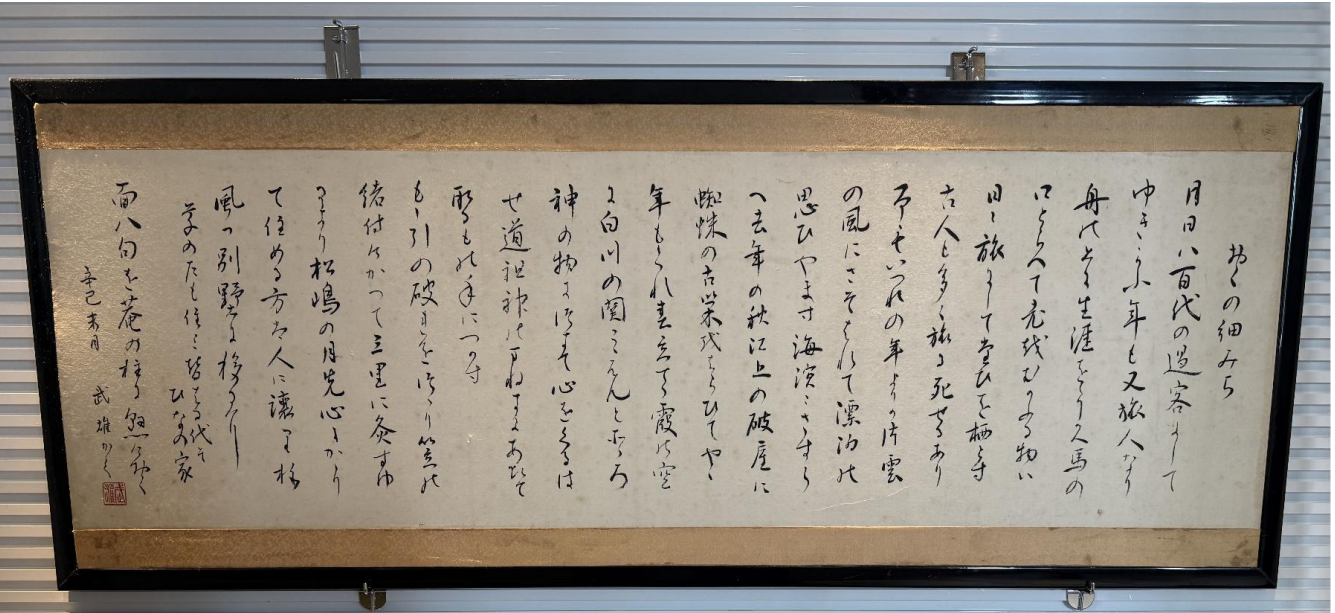 おくの細みち
月日ハ百代の過客にして
ゆきかふ年も又旅人なり
舟の上に生涯をうかへ馬の
口とらへて老をむかふる物ハ
日々旅にして旅を栖とす
古人も多く旅に死せるあり
予もいつれの年よりか片雲
の風にさそはれて漂泊の
思ひやます海濱にさすら
へ去年の秋江上の破屋に
蜘蛛の古巣をはらひてやゝ
年もくれ春立る霞の空
に白川の関こえんとそゝろ
神の物につきて心をくるは
せ道祖神のまねきにあひて
取もの手につかす
もゝ引の破をつゝり笠の
緒付かへて三里に灸すゆ
るより松嶋の月先心にかゝり
て住める方は人に譲り杉
風の別墅に移るに
草の戸も住替る代そ
ひなの家
面八句を庵の柱に懸置く
辛巳 末月 武雄かく